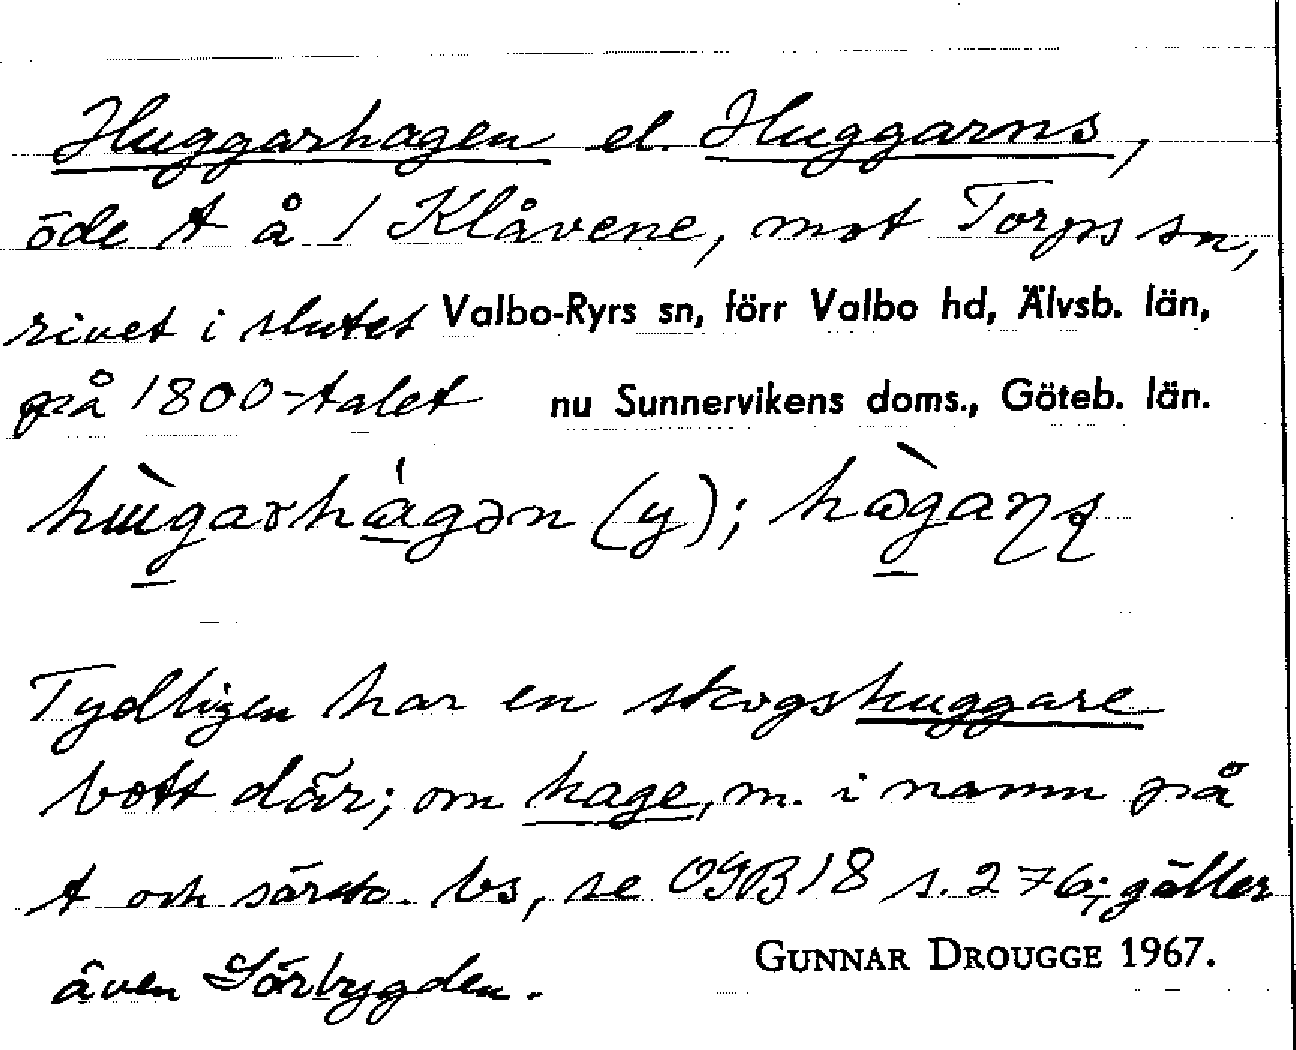 Huggarhagen el. Huggarns,
öde t å 1 Klåvene, mot Torps sn,
rivet i slutet Valbo-Ryrs sn, förr Valbo hd, Älvsb. län,
på 1800-talet nu Sunnervikens doms., Göteb. län.
(y);
Tydligen har en skogshuggare
bott där; om hage, m. i namn på
t och särsk. bs, se OGB 18 s. 276; gäller
även Sörbygden. GUNNAR DROUGGE 1967.